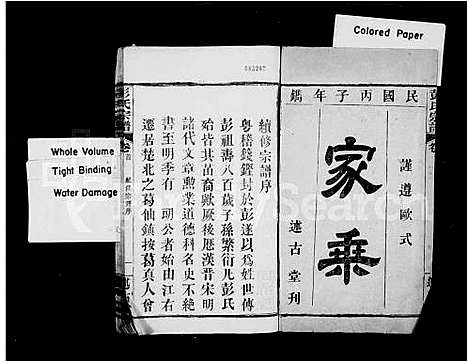 Colored Paper
Whole Volume
Tight Binding
Water Damage
民國丙子年鐫
謹遵歐式
家乘
述古堂刊
續修宗譜序
粵稽錢鏗封於彭遂以為姓世傳
彭祖壽八百歲子孫繁衍凡彭氏
始皆其苗裔歟厥後歷漢晉宋明
諸代文章勲業道德科名史不絕
書至明季有 朝公者始由江右
遷居楚北之葛仙鎮按葛真人曾
彭氏宗譜